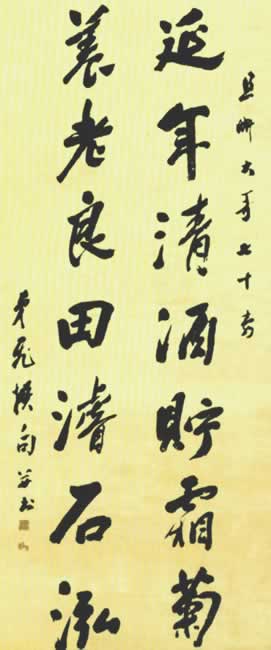 卿大哥七十壽
延年清酒貯霜菊
養老良田濬石泓
撰句并書